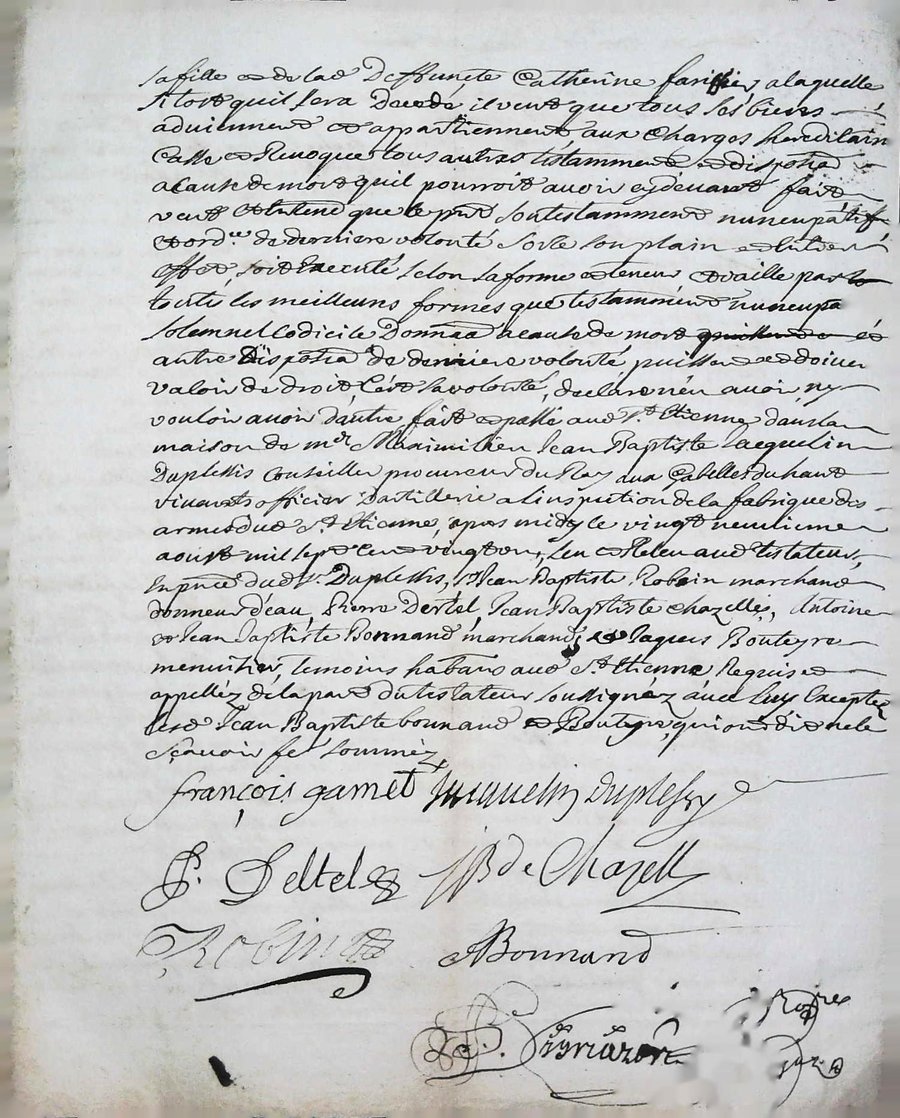 sa fille et de lad Deffuncte Catherine farissier, a laquelle
Sitost quil sera Decedé, il veut que tous ses biens
adviennent et appartiennent, aux charges hereditair
Casse et Revoque tous autres testamments et dispoon
a cause de mort quil pourroit avoir cydevant fait
veut et entend que le pnt son testamment nuncupatif
et ordce de derniere volonté sorte son plain et entier
effet, soit Executé selon sa forme et teneur et vaille par
toutes les meilleurs formes que testamment nuncupa
solemnel Codicile Donnaon a cause de mort et
autre Dispoon de derniere volonté, puissent et doiven
valoir de droit, Cest sa volonté, declare nen avoir, ny
vouloir avoir dautre, fait et passé aud St Etienne dans la
maison de mr Maximilien Jean Baptiste Jacquelin
Duplessis Conseiller procureur du Roy aux Gabelles du haut
vivarets officier Dartillerie a linspection de la fabrique des
armes dud St Etienne, apres midy le vingt neufieme
aoust mil sept Cent vingt un, Leu et Releu aud testateur,
En pnce dud Sr Duplessis, Sr Jean Baptiste Robin marchand
donneur d'eau, Pierre Dertel, Jean Baptiste Chazelles, Antoine
et Jean Baptiste Bonnand marchands, et Jaques Bouteyre
menuisier, temoins habans aud St Etienne Requis et
appellez de la part du testateur soussignez avec luy Excepte
led Jean Baptiste bonnand et Bouteyre, qui ont dit ne le
sçavoir fe sommez
françois gamet Jacquelin Duplessy
P. Deltel JB de Chazell
Robin ABonnand